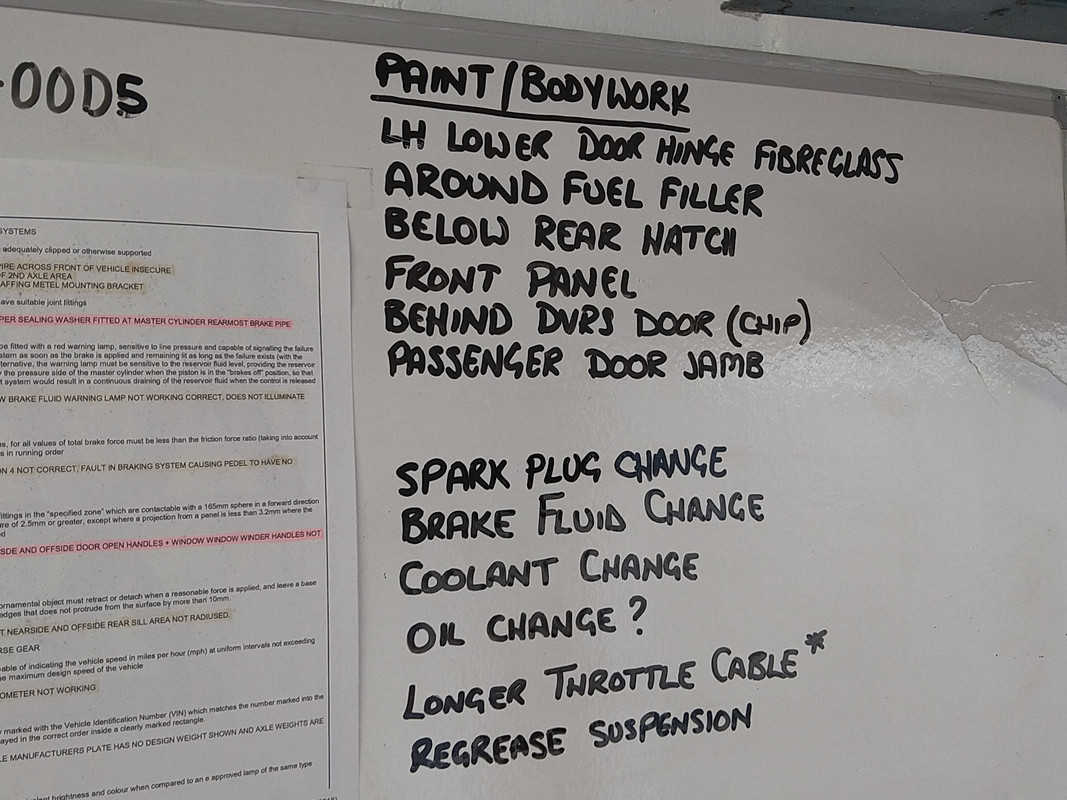 -OODS
PAINT/BODYWORK
LH LOWER DOOR HINGE FIBREGLASS
AROUND FUEL FILLER
BELOW REAR HATCH
FRONT PANEL
BEHIND DVRS DOOR (CHIP)
PASSENGER DOOR JAMB
SPARK PLUG CHANGE
BRAKE FLUID CHANGE
COOLANT CHANGE
OIL CHANGE?
LONGER THROTTLE CABLE*
REGREASE SUSPENSION
SYSTEMS
adequately clipped or otherwise supported
ACROSS FRONT OF VEHICLE INSECURE
OF 2ND AXLE AREA
METEL MOUNTING BRACKET
have suitable joint fittings
SEALING WASHER FITTED AT MASTER CYLINDER REARMOST BRAKE PIPE
be fitted with a red warning lamp, sensitive to line pressure and capable of signalling the failure
as soon as the brake is applied and remaining lit as long as the failure exists (with the
the warning lamp must be sensitive to the reservoir fluid level, providing the reservoir
the pressure side of the master cylinder when the piston is in the "brakes off" position, so that
system would result in a continuous draining of the reservoir fluid when the control is released
BRAKE FLUID WARNING LAMP NOT WORKING CORRECT, DOES NOT ILLUMINATE
for all values of total brake force must be less than the friction force ratio (taking into account
in running order
4 NOT CORRECT, FAULT IN BRAKING SYSTEM CAUSING PEDEL TO HAVE NO
fittings in the "specified zone" which are contactable with a 165mm sphere in a forward direction
of 2.5mm or greater, except where a projection from a panel is less than 3.2mm where the
AND OFFSIDE DOOR OPEN HANDLES + WINDOW WINDOW WINDER HANDLES NOT
ornamental object must retract or detach when a reasonable force is applied, and leave a base
edges that does not protrude from the surface by more than 10mm.
NEARSIDE AND OFFSIDE REAR SILL AREA NOT RADIUSED.
GEAR
of indicating the vehicle speed in miles per hour (mph) at uniform intervals not exceeding
maximum design speed of the vehicle
NOT WORKING
marked with the Vehicle Identification Number (VIN) which matches the number marked into the
in the correct order inside a clearly marked rectangle.
MANUFACTURERS PLATE HAS NO DESIGN WEIGHT SHOWN AND AXLE WEIGHTS ARE
brightness and colour when compared to an e approved lamp of the same type